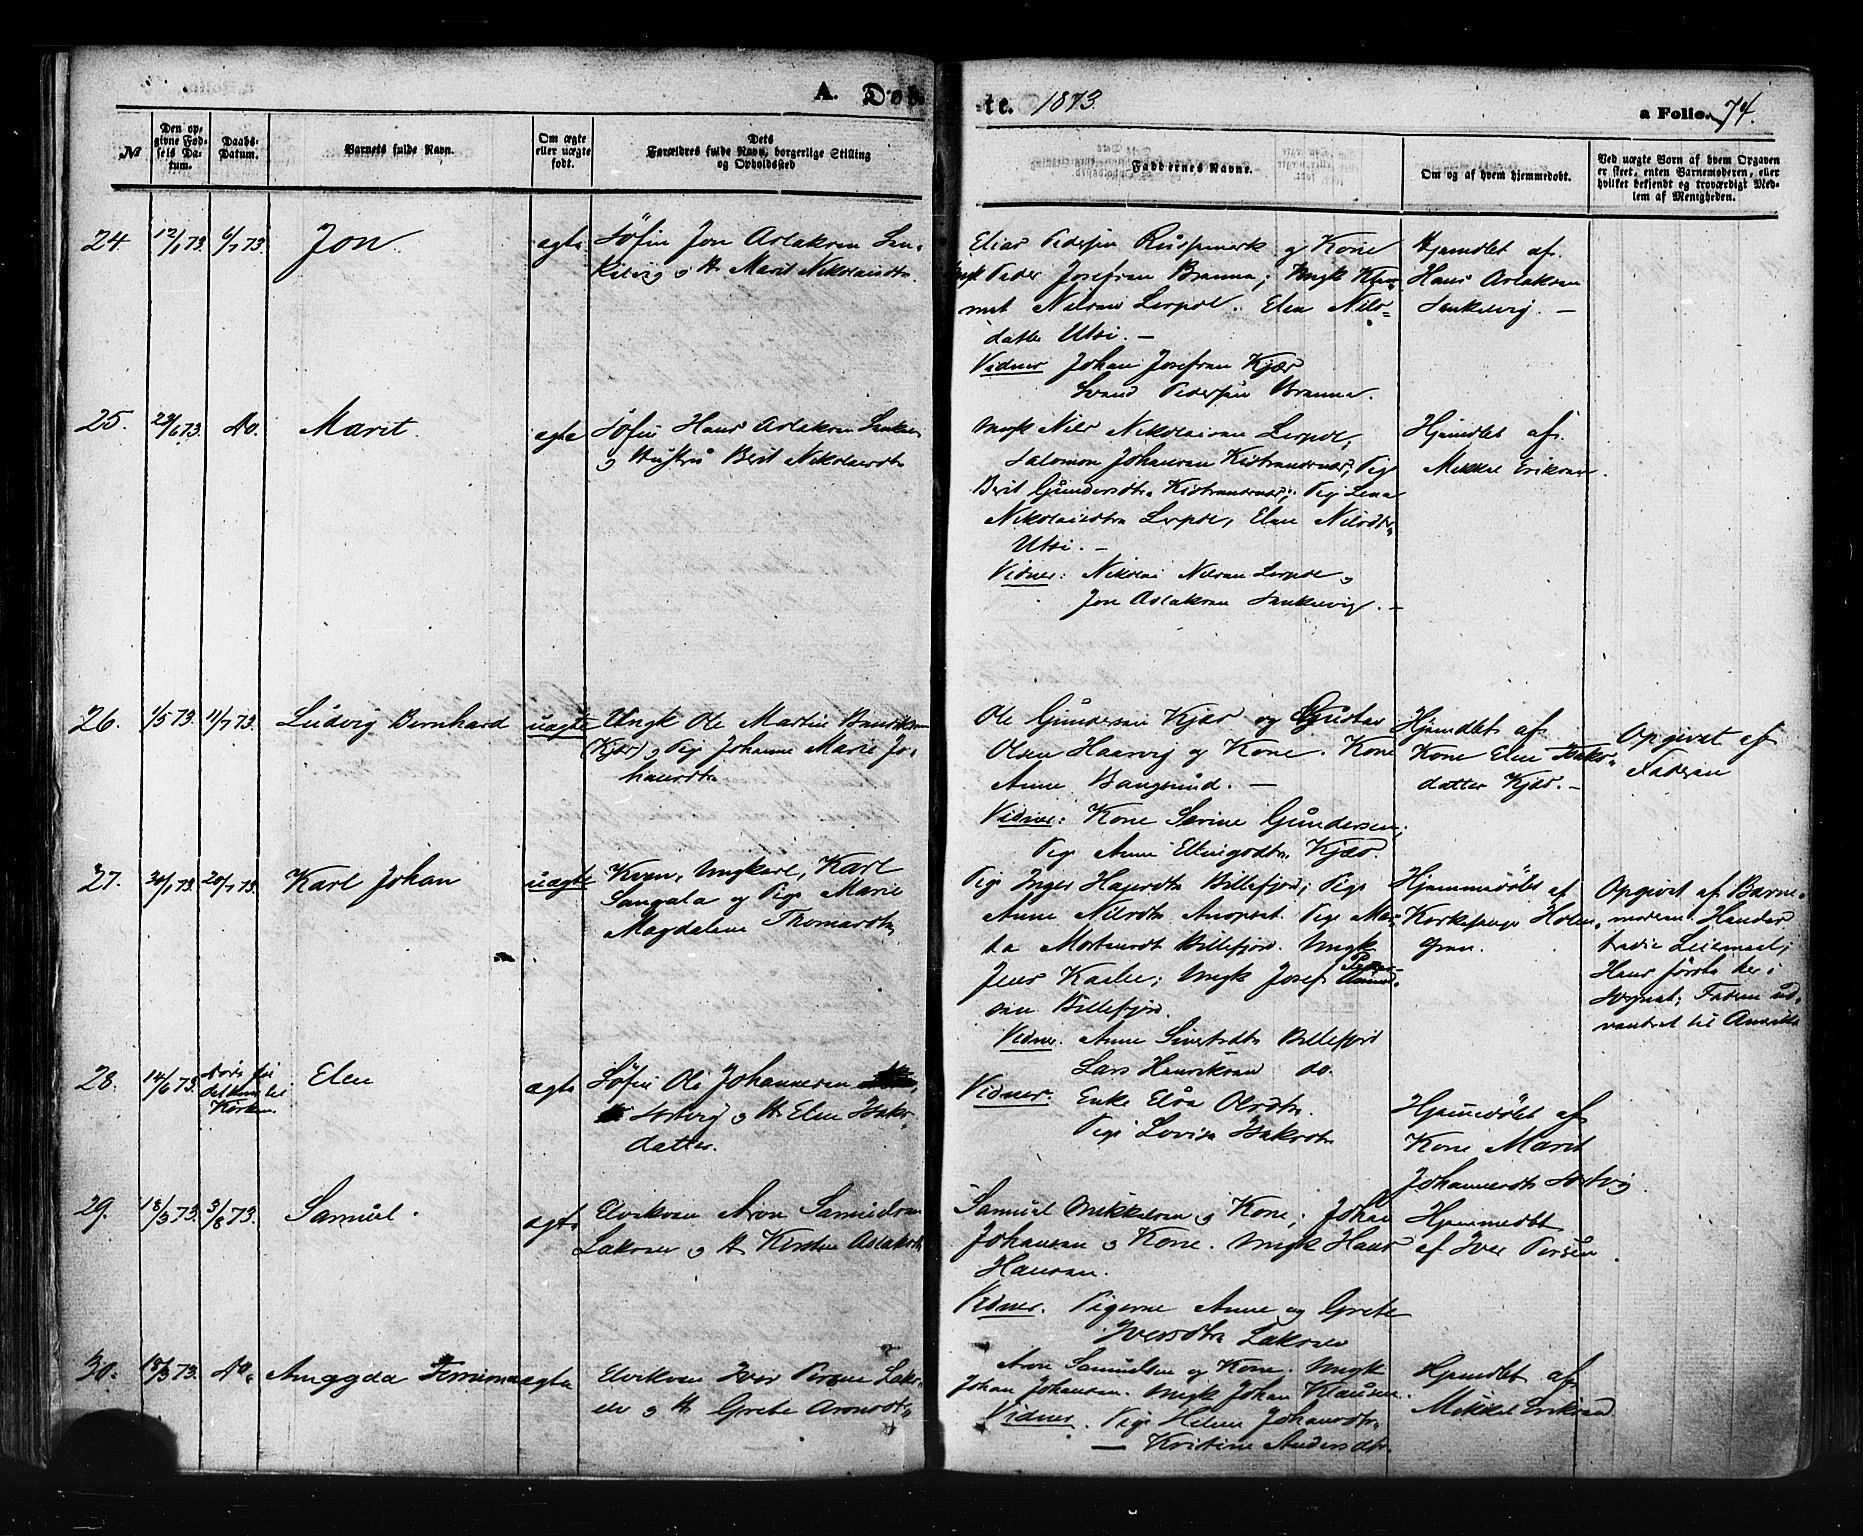 A. Døb-
te. 1873.
a Folio. 74.
№
Den op-
givne Fød-
sels Da-
tum.
Daabs-
Datum.
Barnets fulde Navn.
Om ægte
eller uægte
født.
Dets
Forældres fulde Navn, borgerlige Stilling
og Opholdssted
Faddernes Navne.
Om og af hvem hjemmedøbt.
Ved uægte Born af hvem Opgaven
er skeet, enten Barnemoderen, eller
hvilket bekjendt og troværdigt Med-
lem af Menigheden.
24 12/1 73. 6/7 73. Jon. ægte
Søfin Jon Aslaksen
og H. Marit Nikolaisdtr.
Elias Pedersen og Kone
Ungk Peder Josefsen Branna; Ungk Klem-
met Nilsen Leirpol. Elen Nils-
datter Utsi. —
Vidner Johan Josefsen Kjær
Svend Pedersen Branna.
Hjemdbt af
Hans Aslaksen
—
25. do. Marit. ægte
Søfin Hans Aslaksen
og Hustru Berit Nikolaisdtr
Ungk Nils Nikolaisen Leirpol,
Salomon Johansen Kistrandsnæs; Pige
Berit Gundersdtr Kistrandsnæs; Pige Lena
Nikolaisdtr Leirpol, Elen Nilsdtr
Utsi. —
Vidner: Nikolai Nilsen Leirpol og
Jon Aslaksen —
Hjemdbt af
Mikkel Eriksen.
26. 1/5 73. 11/7 73. Ludvig Bernhard uægte
Ungk Ole Martin
(Kjæs) og Pige Johanne Marie Jo-
hansdtr
Ole Gundersen Kjæs og Gustav
Olsen Haarvig og Kone. Kone
Anne Bangsund. —
Vidner: Kone Serine Gundersen;
Pige Anne Kjæs.
Hjemdbt af
Kone Elen Isaks-
datter Kjæs. —
Opgivet af
Faderen
27. 30/1 73. 20/7 73. Karl Johan uægte
Kven, Ungkarl, Karl
Sangala og Pige Marie
Magdalene Thomasdtr
Pige Inger Hansdtr Billefjord; Pige
Anne Nilsdtr Anopset. Pige Mar-
ta Mortensdtr Billefjord. Ungk
Jens Kaalee; Ungk Josef
sen Billefjord.
Vidner. Anne Sivertsdtr Billefjord
Lars Henriksen do.
Hjemmedøbt af
Kirkesanger Holm-
gren.
Opgivet af Barne-
moderen. Hendes
tredie Leiermaal;
Hans første her i
Sognet; Faderen ud-
vandret til Amerika
28. 14/6 73. Døde før
det kom til
Kirken. Elen ægte
Søfin Ole Johannesen
og H. Elen Isaks-
datter.
Vidner: Enke Elsa Olsdtr.
Pige Lovisa Isaksdtr
Hjemmedøbt af
Kone Marit
Johannesdtr
29. 18/3 73. 3/8 73. Samuel. ægte
Elvekven Aron Samuelsen
Lakselv og H. Kirsten Aslaksdtr
Samuel Mikkelsen og Kone; Johan
Johansen og Kone. Ungk Hans
Hansen.
Vidner. Pigerne Anne og Grete
Iversdtr Lakselv
Hjemmedbt
af Iver Persen.
30. 18/3 73. do. ægte
Elvekven Iver Persen Laks-
elv og H. Grete Aronsdtr
Aron Samuelsen og Kone. Ungk
Johan Johansen. Ungk Johan Klausen.
Vidner. Pige Helene Johansdtr.
— Kristine Andersdtr.
Hjemdbt af
Mikkel Eriksen